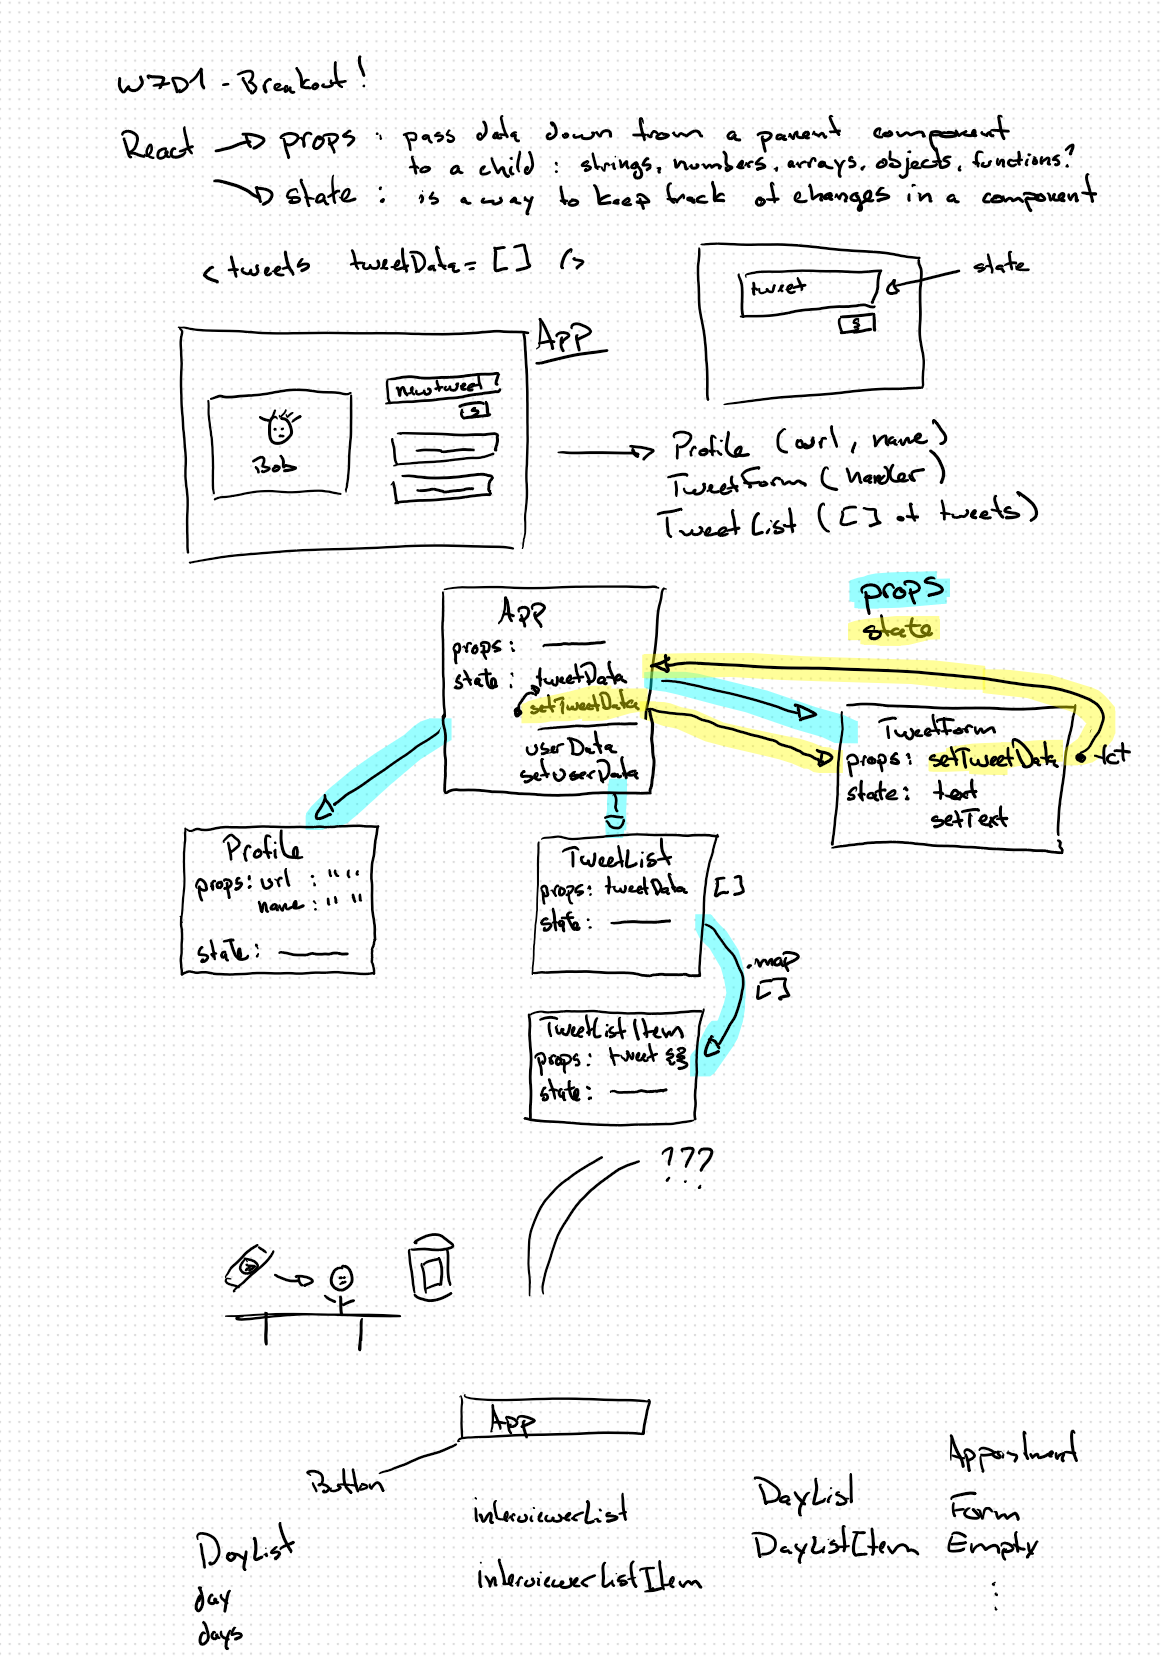 W7D1 - Breakout!
React → props : pass data down from a parent component
to a child : strings, numbers, arrays, objects, functions?
→ state : is a way to keep track of changes in a component
< tweets tweetData = [] />
tweet
state
S
App
new tweet
S
Bob
Profile (ourl, name)
TweetForm (handler)
TweetList ([] of tweets)
props
state
App
props :
state : tweetData
setTweetData
userData
setUserData
TweetForm
props : setTweetData
fct
state : text
setText
Profile
props : url : " "
name : " "
state :
TweetList
props : tweetData
[]
state :
.map
[]
TweetListItem
props : tweet {}
state :
???
App
Button
interviewerList
interviewerListItem
DayList
day
days
DayList
DayListItem
Appointment
Form
Empty
: